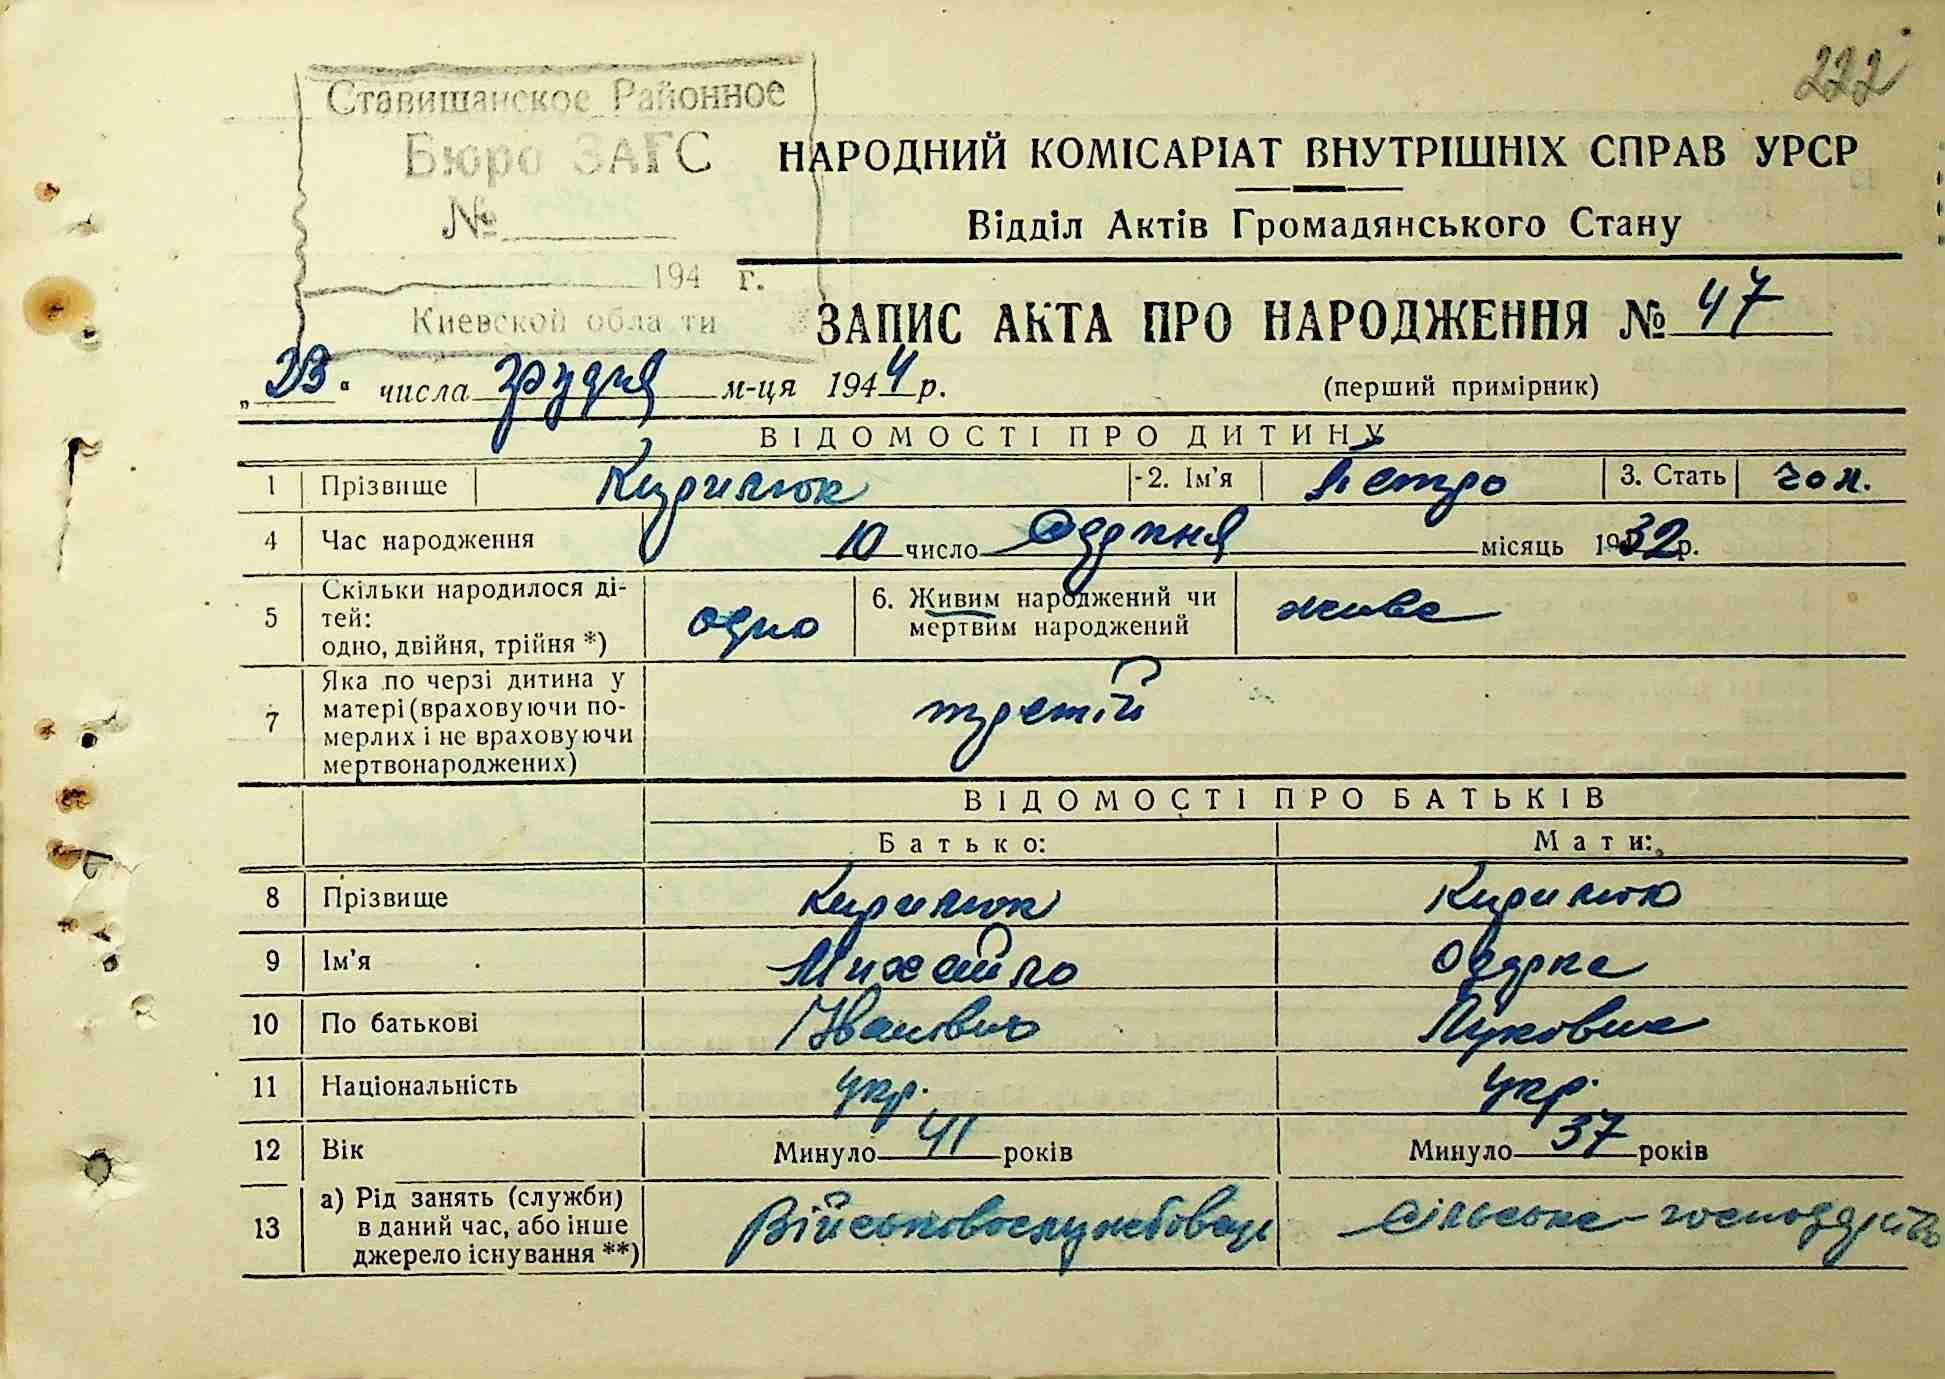 222
Ставищанское Районное
Бюро ЗАГС
№
194 г.
Киевской области
НАРОДНИЙ КОМІСАРІАТ ВНУТРІШНІХ СПРАВ УРСР
Відділ Актів Громадянського Стану
ЗАПИС АКТА ПРО НАРОДЖЕННЯ № 47
„23“ числа грудня м-ця 1944 р. (перший примірник)
ВІДОМОСТІ ПРО ДИТИНУ
1 Прізвище Кирилюк 2. Ім'я Петро 3. Стать чол.
4 Час народження 10 число Серпня місяць 1932 р.
5 Скільки народилося ді-
тей:
одно, двійня, трійня *) одно 6. Живим народжений чи
мертвим народжений живе
7 Яка по черзі дитина у
матері (враховуючи по-
мерлих і не враховуючи
мертвонароджених) третій
ВІДОМОСТІ ПРО БАТЬКІВ
Батько: Мати:
8 Прізвище Кирилюк Кирилюк
9 Ім'я Михайло Одарка
10 По батькові Іванович Луковна
11 Національність укр. укр.
12 Вік Минуло 41 років Минуло 37 років
13 а) Рід занять (служби)
в даний час, або інше
джерело існування **) Військовослужбовець сільське